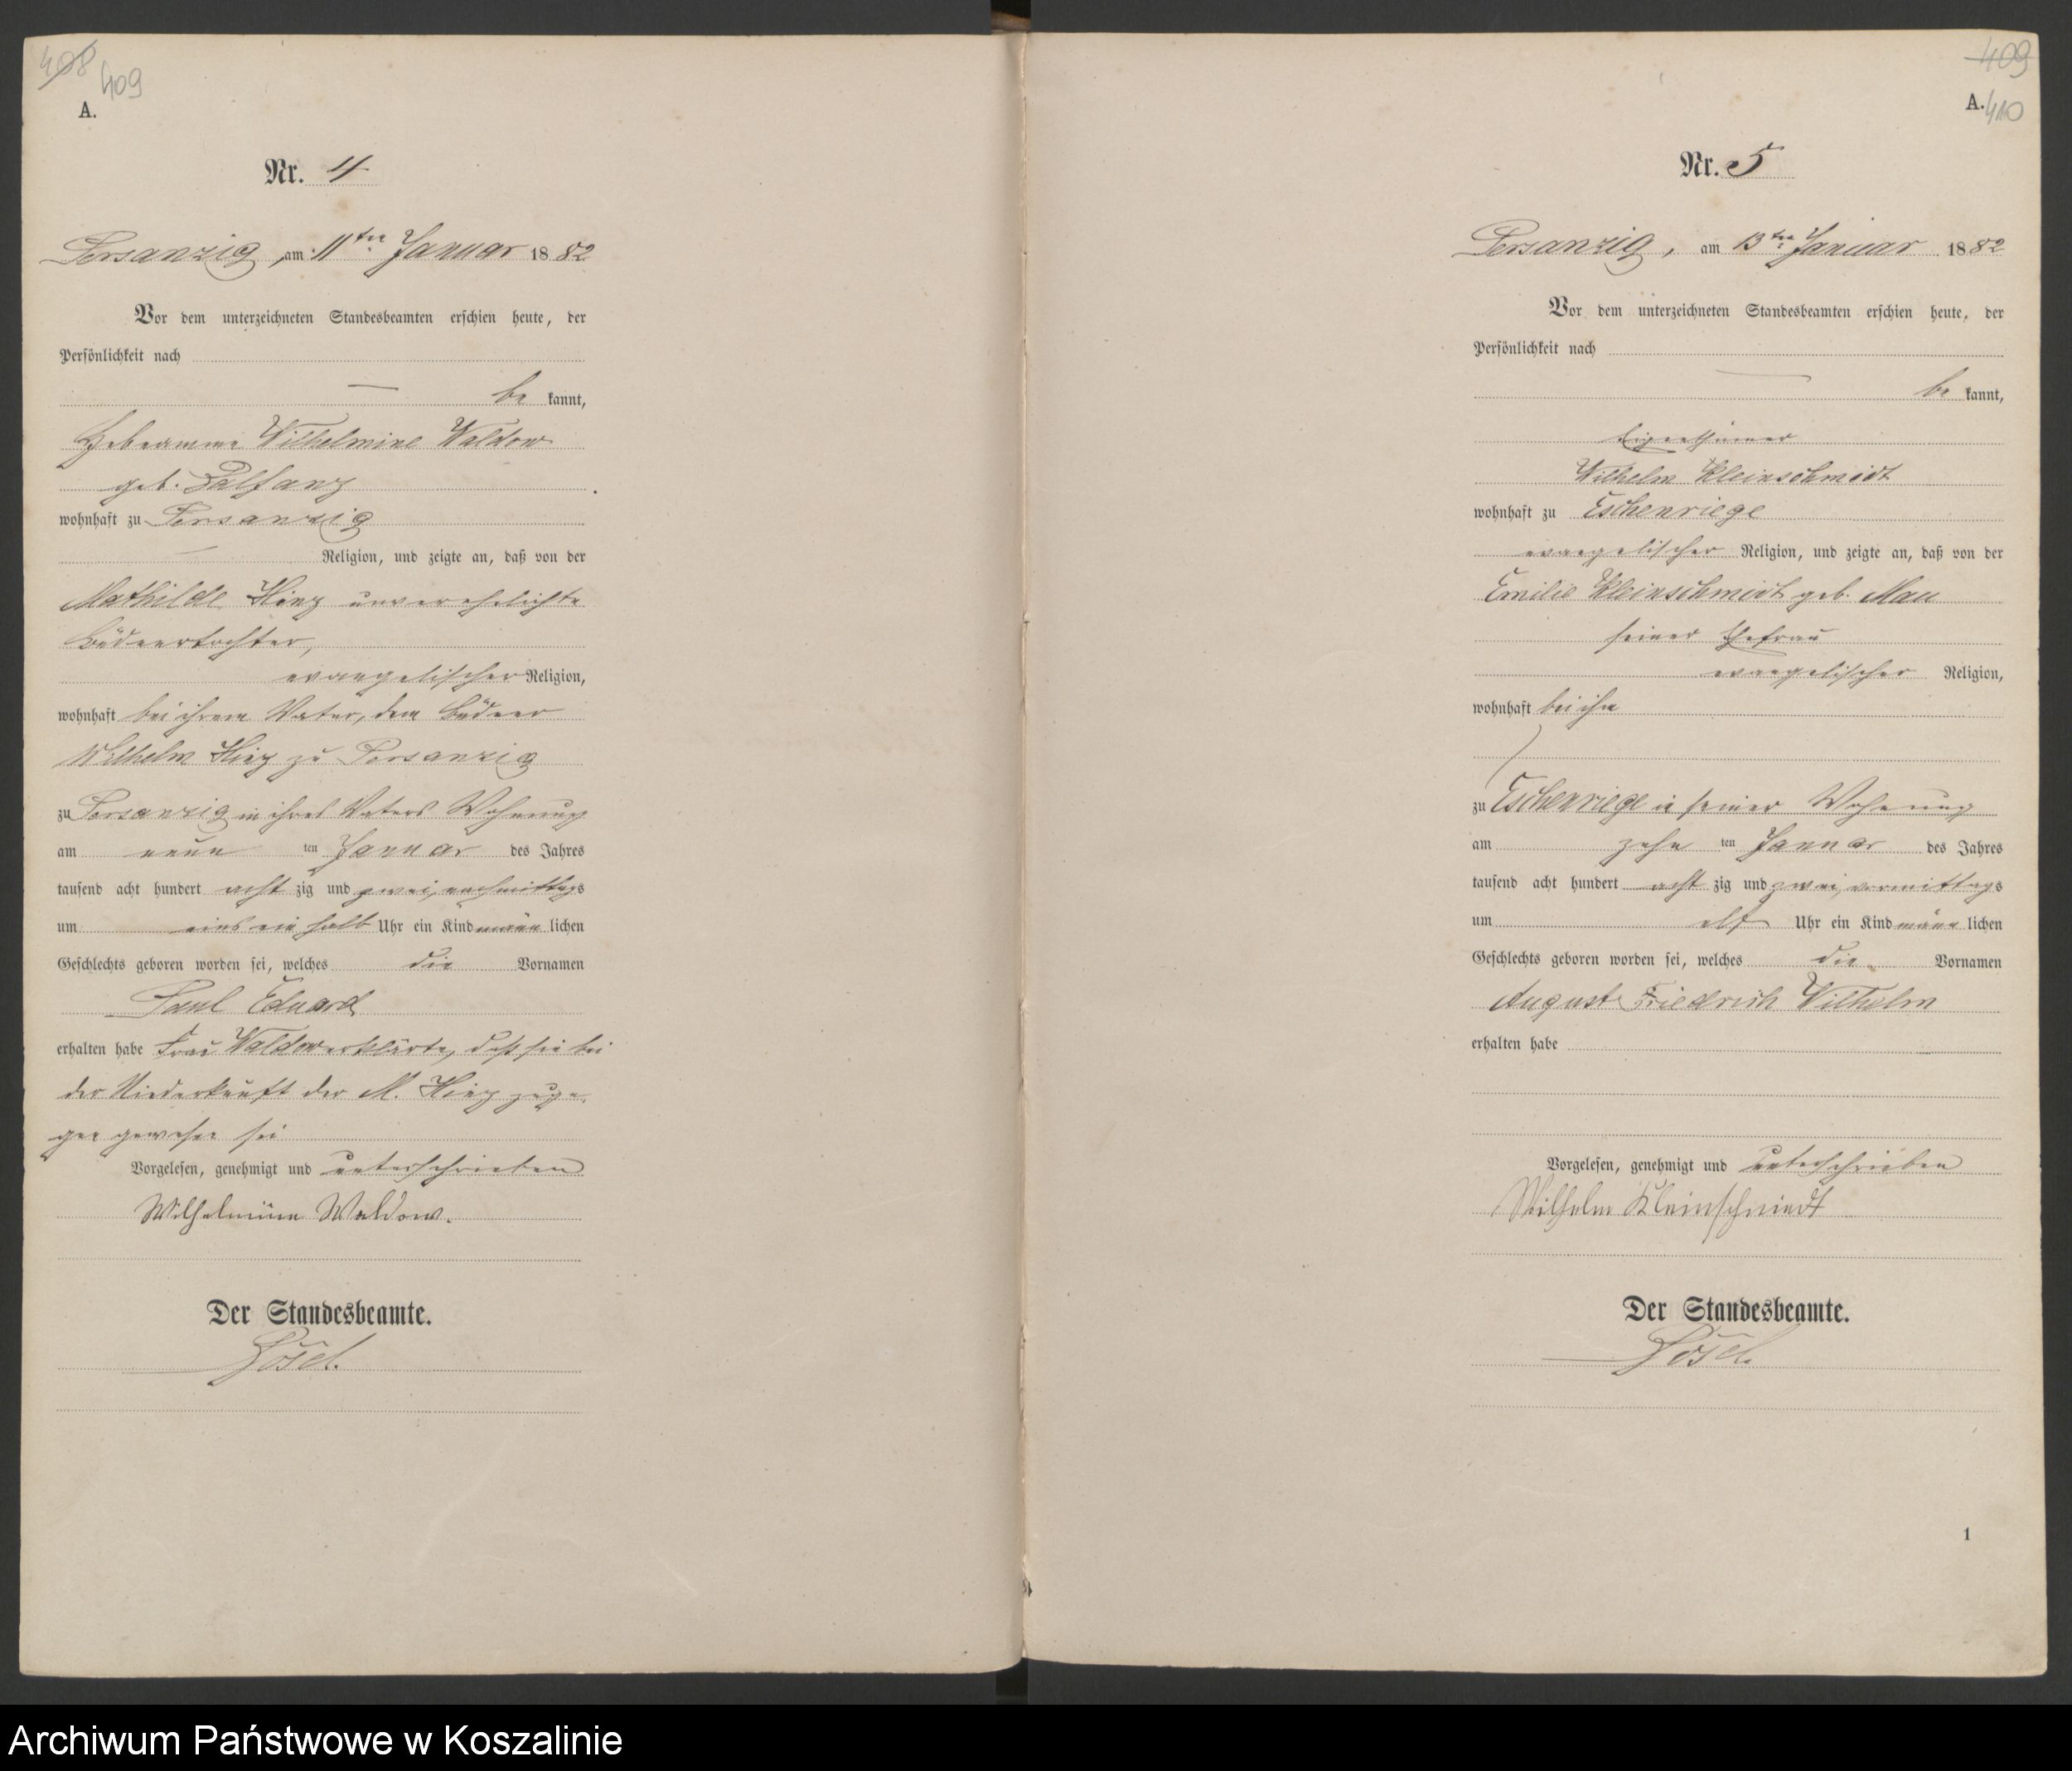 408
409
A.
Nr. 4
Persanzig, am 11ten Januar 1882
Vor dem unterzeichneten Standesbeamten erschien heute, der
Persönlichkeit nach
be kannt,
Hebeamme Wilhelmine Waldow
geb. Palfanz
wohnhaft zu Persanzig
Religion, und zeigte an, daß von der
Mathilde Hinz unverehelichte
Büdnertochter,
evangelischer Religion,
wohnhaft bei ihrem Vater, dem Büdner
Wilhelm Hinz zu Persanzig
zu Persanzig in ihres Vaters Wohnung
am neun ten Januar des Jahres
tausend acht hundert acht zig und zwei, nachmittags
um eins ein halb Uhr ein Kind männ lichen
Geschlechts geboren worden sei, welches die Vornamen
Paul Eduard
erhalten habe Frau Waldow erklärte, daß sie bei
der Niederkunft der M. Hinz zuge-
gen gewesen sei
Vorgelesen, genehmigt und unterschrieben
Wilhelmine Waldow.
Der Standesbeamte.
409
A. 410
Nr. 5
Persanzig, am 13ten Januar 1882
Vor dem unterzeichneten Standesbeamten erschien heute, der
Persönlichkeit nach
be kannt,
Eigenthümer
Wilhelm Kleinschmidt
wohnhaft zu Eschenriege
evangelischer Religion, und zeigte an, daß von der
Emilie Kleinschmidt geb. Mau
seiner Ehefrau
evangelischer Religion,
wohnhaft bei ihm
zu Eschenriege in seiner Wohnung
am zehn ten Januar des Jahres
tausend acht hundert acht zig und zwei, vormittags
um elf Uhr ein Kind männ lichen
Geschlechts geboren worden sei, welches die Vornamen
August Friedrich Wilhelm
erhalten habe
Vorgelesen, genehmigt und unterschrieben
Wilhelm Kleinschmidt
Der Standesbeamte.
1
Archiwum Państwowe w Koszalinie